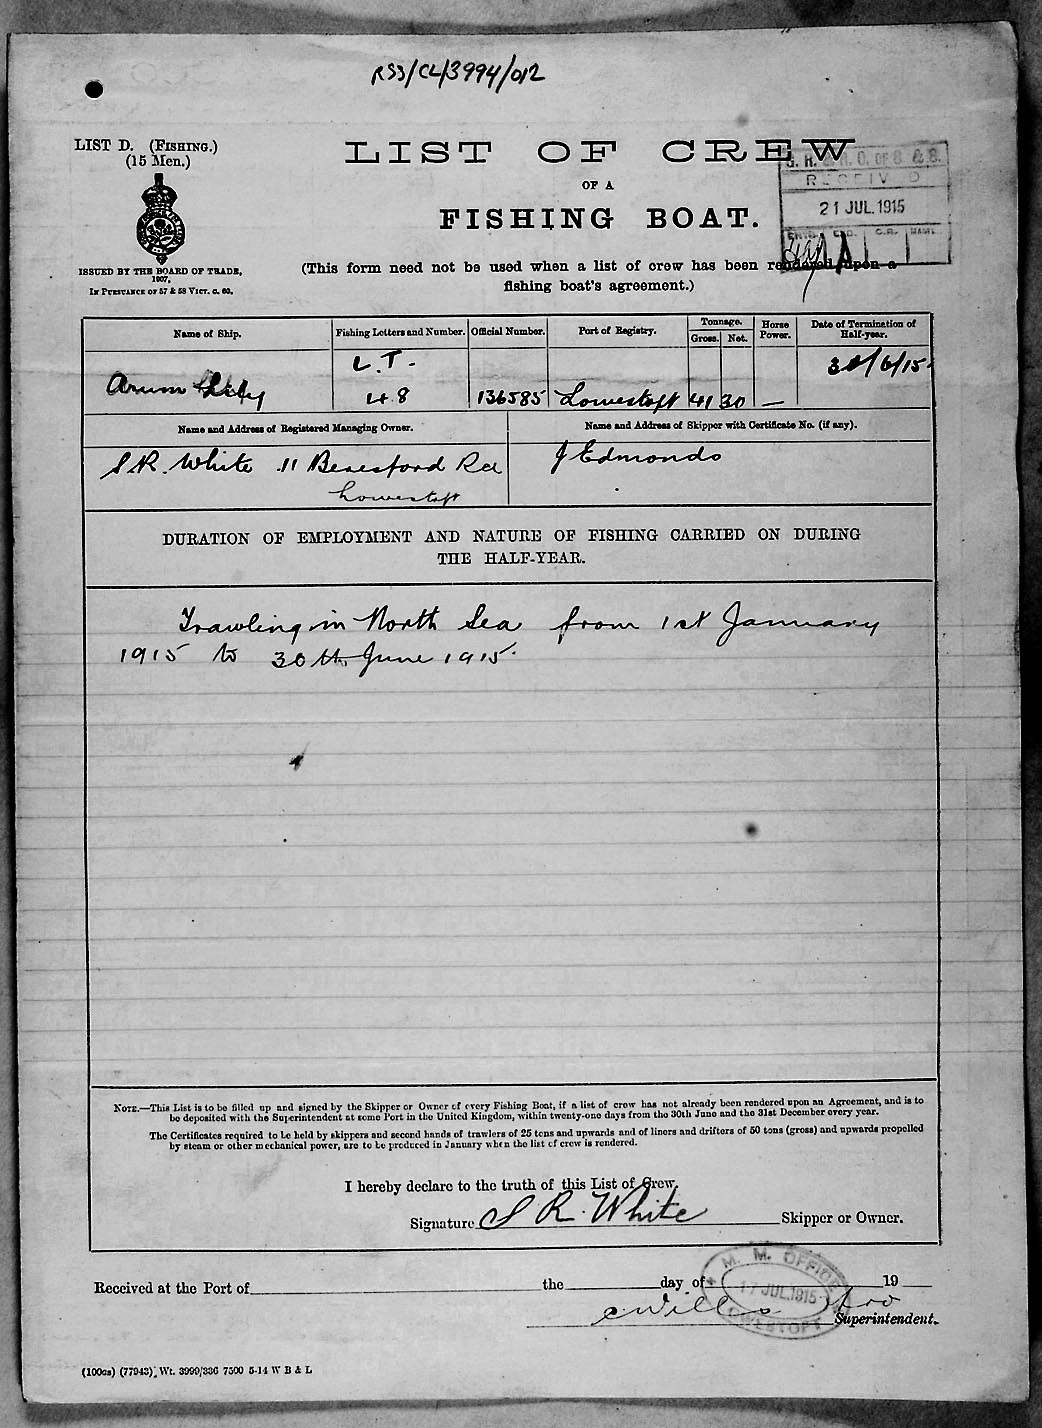 RSS/CL/3994/012
LIST D. (FISHING.)
(15 Men.)
LIST OF CREW
OF A
FISHING BOAT.
RECEIVED
21 JUL.1915
ISSUED BY THE BOARD OF TRADE,
1907,
IN PURSUANCE OF 57 & 58 VICT. C. 60.
(This form need not be used when a list of crew has been rendered upon a
fishing boat's agreement.)
Name of Ship.
Fishing Letters and Number.
Official Number.
Port of Registry.
Tonnage.
Gross.
Net.
Horse
Power.
Date of Termination of
Half-year.
Arum Lily
L.T.
48
136585
Lowestoft
41
30
—
30/6/15.
Name and Address of Registered Managing Owner.
Name and Address of Skipper with Certificate No. (if any).
S R. White 11 Beresford Rd
Lowestoft
J Edmonds
DURATION OF EMPLOYMENT AND NATURE OF FISHING CARRIED ON DURING
THE HALF-YEAR.
Trawling in North Sea from 1st January
1915 to 30th June 1915.
NOTE.—This List is to be filled up and signed by the Skipper or Owner of every Fishing Boat, if a list of crew has not already been rendered upon an Agreement, and is to
be deposited with the Superintendent at some Port in the United Kingdom, within twenty-one days from the 30th June and the 31st December every year.
The Certificates required to be held by skippers and second hands of trawlers of 25 tons and upwards and of liners and drifters of 50 tons (gross) and upwards propelled
by steam or other mechanical power, are to be produced in January when the list of crew is rendered.
I hereby declare to the truth of this List of Crew.
Signature S R. White Skipper or Owner.
Received at the Port of the day of 19
M. M. OFFICE
17 JUL.1915
LOWESTOFT
Superintendent.
(100gs) (77943) Wt. 3999/336 7500 5-14 W B & L